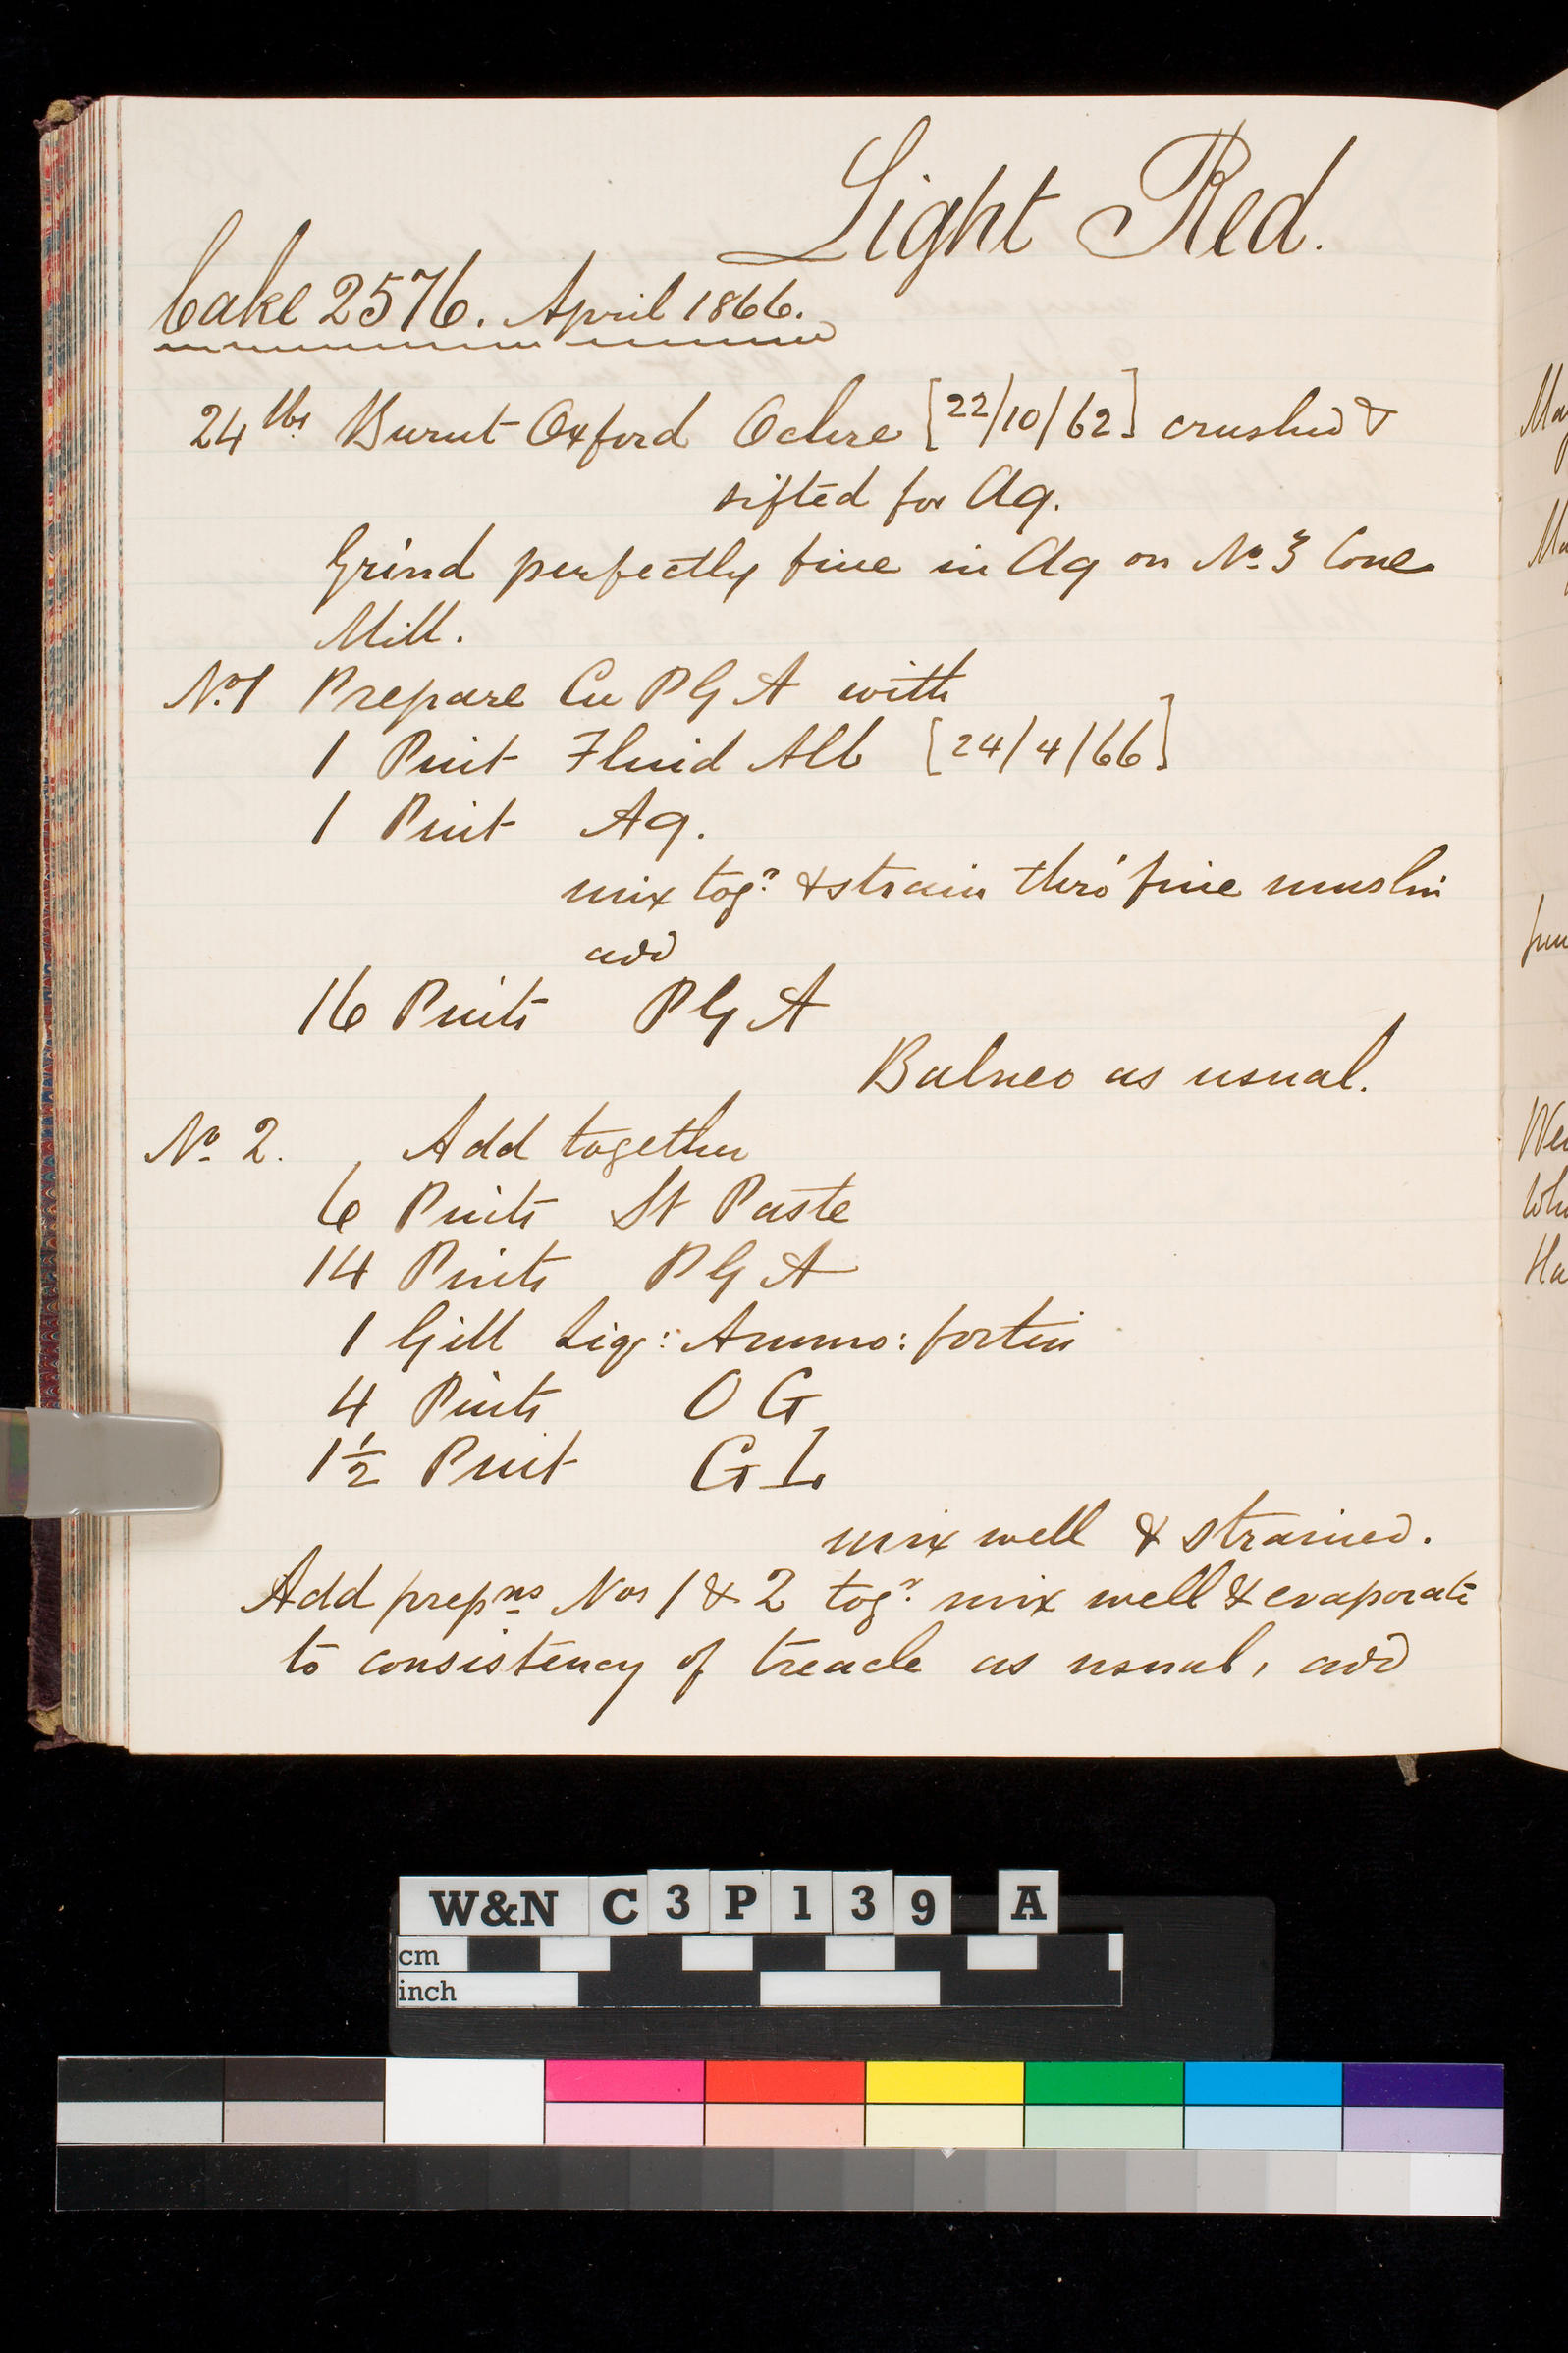 Light Red.
Cake 2576. April 1866.
24 lbs Burnt Oxford Ochre [22/10/62] crushed &
sifted for Aq.
Grind perfectly fine in Aq on No. 3 Cone
Mill.
No. 1 Prepare Cu P G A with
1 Pint Fluid Alb [24/4/66]
1 Pint Aq.
mix togr. & strain thro' fine muslin
add
16 Pints P G A
Balneo as usual.
No. 2. Add together
6 Pints St Paste
14 Pints P G A
1 Gill Liq: Ammo: fortis
4 Pints O G
1½ Pint G L
mix well & strained.
Add prepns Nos 1 & 2 togr. mix well & evaporate
to consistency of treacle as usual, add
Wh
Ha
W&N C3P139 A
cm
inch